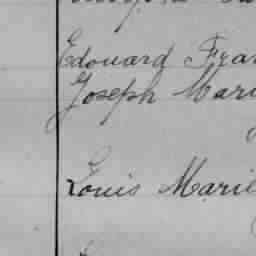 Edouard Fran
Joseph Mari
Louis Marie